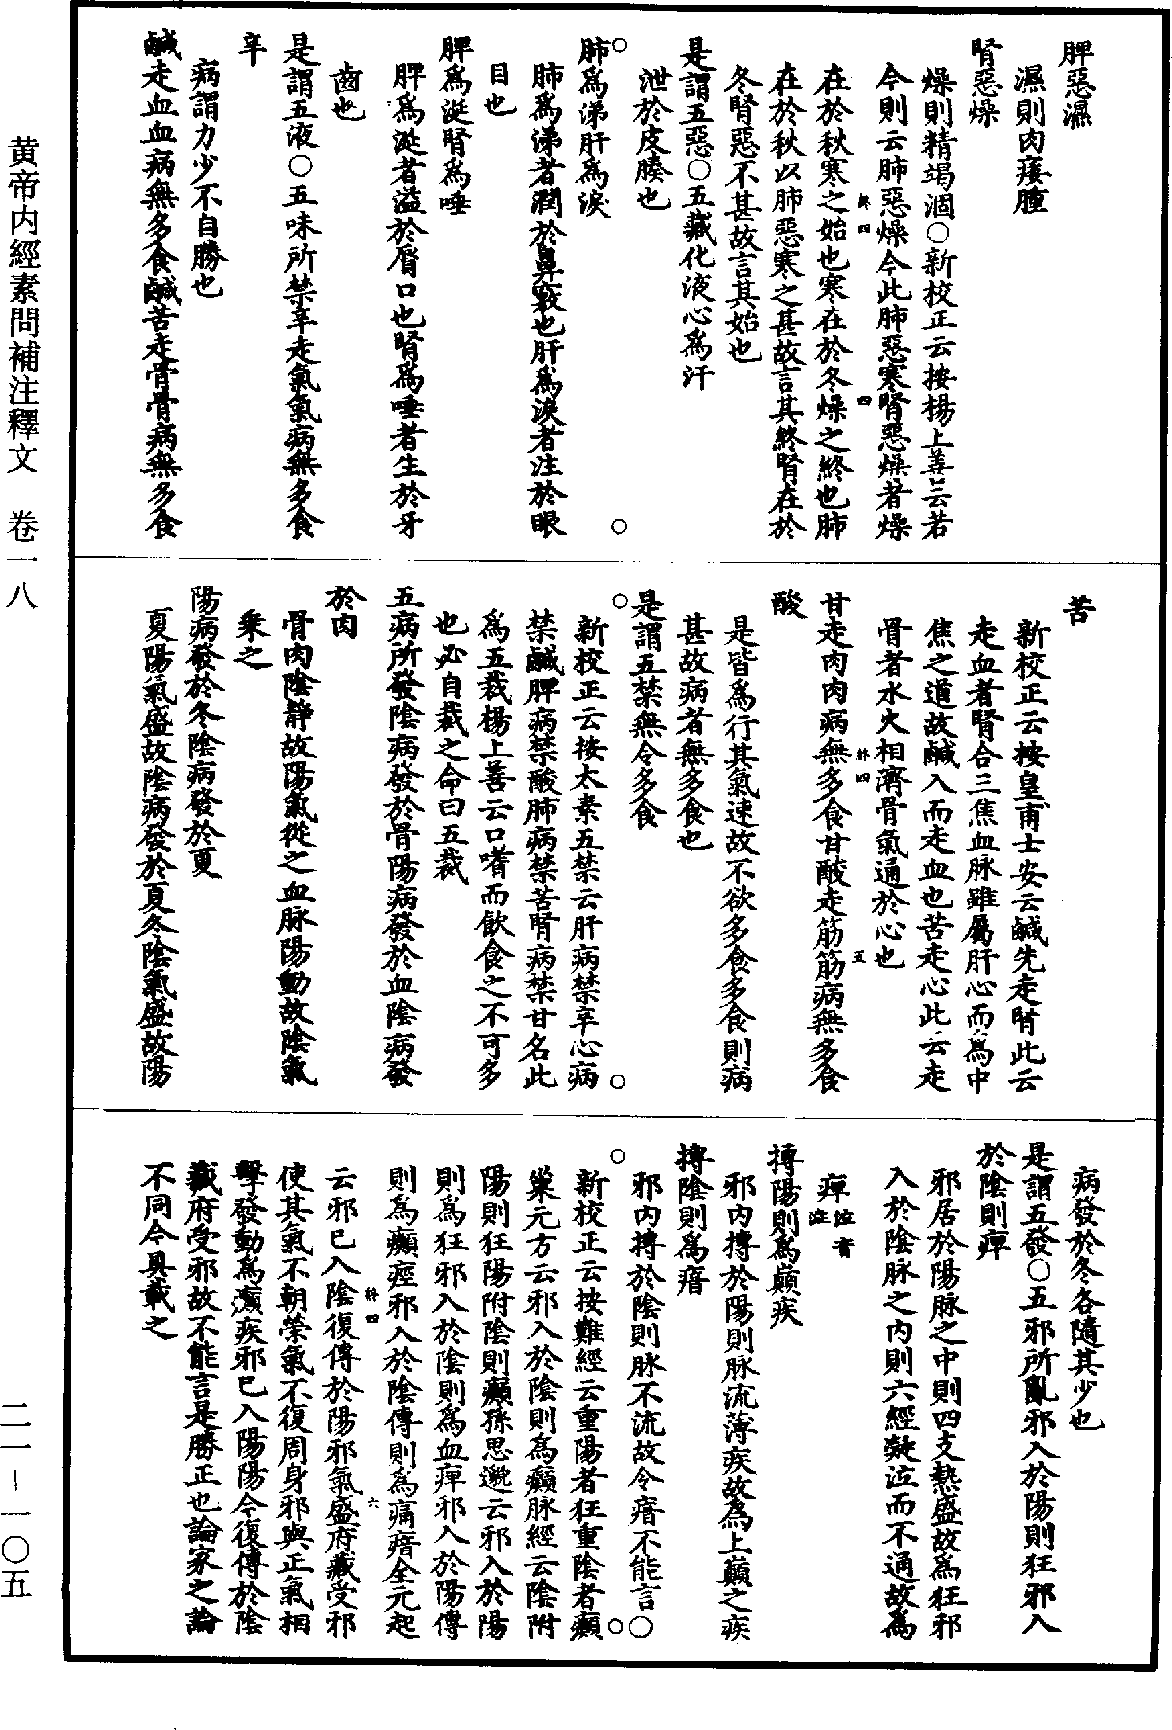 脾惡濕
濕則肉痿腫
腎惡燥
燥則精竭涸○新校正云按楊上善云若
今則云肺惡燥今此肺惡寒腎惡燥者燥
在於秋寒之始也寒在於冬燥之終也肺
在於秋以肺惡寒之甚故言其終腎在於
冬腎惡不甚故言其始也
是謂五惡○五藏化液心爲汗
泄於皮腠也
肺爲涕肝爲淚
肺爲涕者潤於鼻竅也肝爲淚者注於眼
目也
脾爲涎腎爲唾
脾爲涎者溢於脣口也腎爲唾者生於牙
齒也
是謂五液○五味所禁辛走氣氣病無多食
辛
病謂力少不自勝也
鹹走血血病無多食鹹苦走骨骨病無多食
苦
新校正云按皇甫士安云鹹先走腎此云
走血者腎合三焦血脉雖屬肝心而爲中
焦之道故鹹入而走血也苦走心此云走
骨者水火相濟骨氣通於心也
甘走肉肉病無多食甘酸走筋筋病無多食
酸
是皆爲行其氣速故不欲多食多食則病
甚故病者無多食也
是謂五禁無令多食
新校正云按太素五禁云肝病禁辛心病
禁鹹脾病禁酸肺病禁苦腎病禁甘名此
爲五裁楊上善云口嗜而飲食之不可多
也必自裁之命曰五裁
五病所發陰病發於骨陽病發於血陰病發
於肉
骨肉陰静故陽氣從之血脉陽動故陰氣
乘之
陽病發於冬陰病發於夏
夏陽氣盛故陰病發於夏冬陰氣盛故陽
病發於冬各隨其少也
是謂五發○五邪所亂邪入於陽則狂邪入
於陰則痺
邪居於陽脉之中則四支熱盛故爲狂邪
入於陰脉之内則六經凝泣而不通故爲
痺泣音澁
搏陽則爲巔疾
邪内搏於陽則脉流薄疾故爲上巔之疾
搏陰則爲瘖
邪内搏於陰則脉不流故令瘖不能言○
新校正云按難經云重陽者狂重陰者癲
巢元方云邪入於陰則爲癲脉經云陰附
陽則狂陽附陰則癲孫思邈云邪入於陽
則爲狂邪入於陰則爲血痺邪入於陽傳
則爲癲痙邪入於陰傳則爲痛瘖全元起
云邪已入陰復傳於陽邪氣盛府藏受邪
使其氣不朝榮氣不復周身邪與正氣相
擊發動爲癲疾邪已入陽陽今復傳於陰
藏府受邪故不能言是勝正也論家之論
不同今具載之
黄帝内經素問補注釋文　卷一八
二一－一〇五